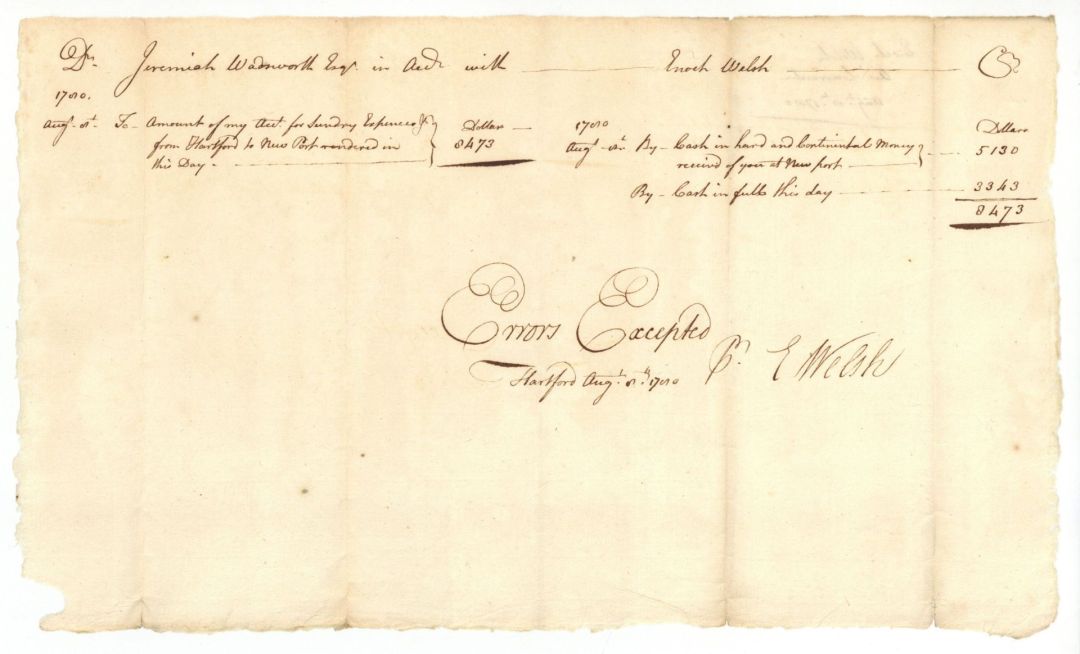 Dr. Jeremiah Wadsworth Esqr. in Acct. with Enoch Welsh Cr.
1780.
Augt. 8t. To Amount of my Act. for Sundry Expences &c
from Hartford to New Port rendered in
this Day
Dollars
8473
1780
Augt. 8t. By Cash in hard and Continental Money
received of you at New port
Dollars
5130
By Cash in full this day 3343
8473
Errors Excepted
Pr. E Welsh
Hartford Augt. 8th. 1780